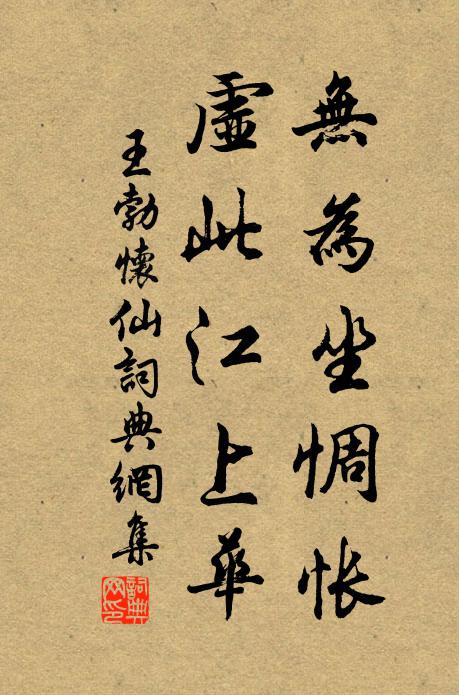 無為坐惆悵
虛此江上華
王勃懷仙詞典網集
詞典網印